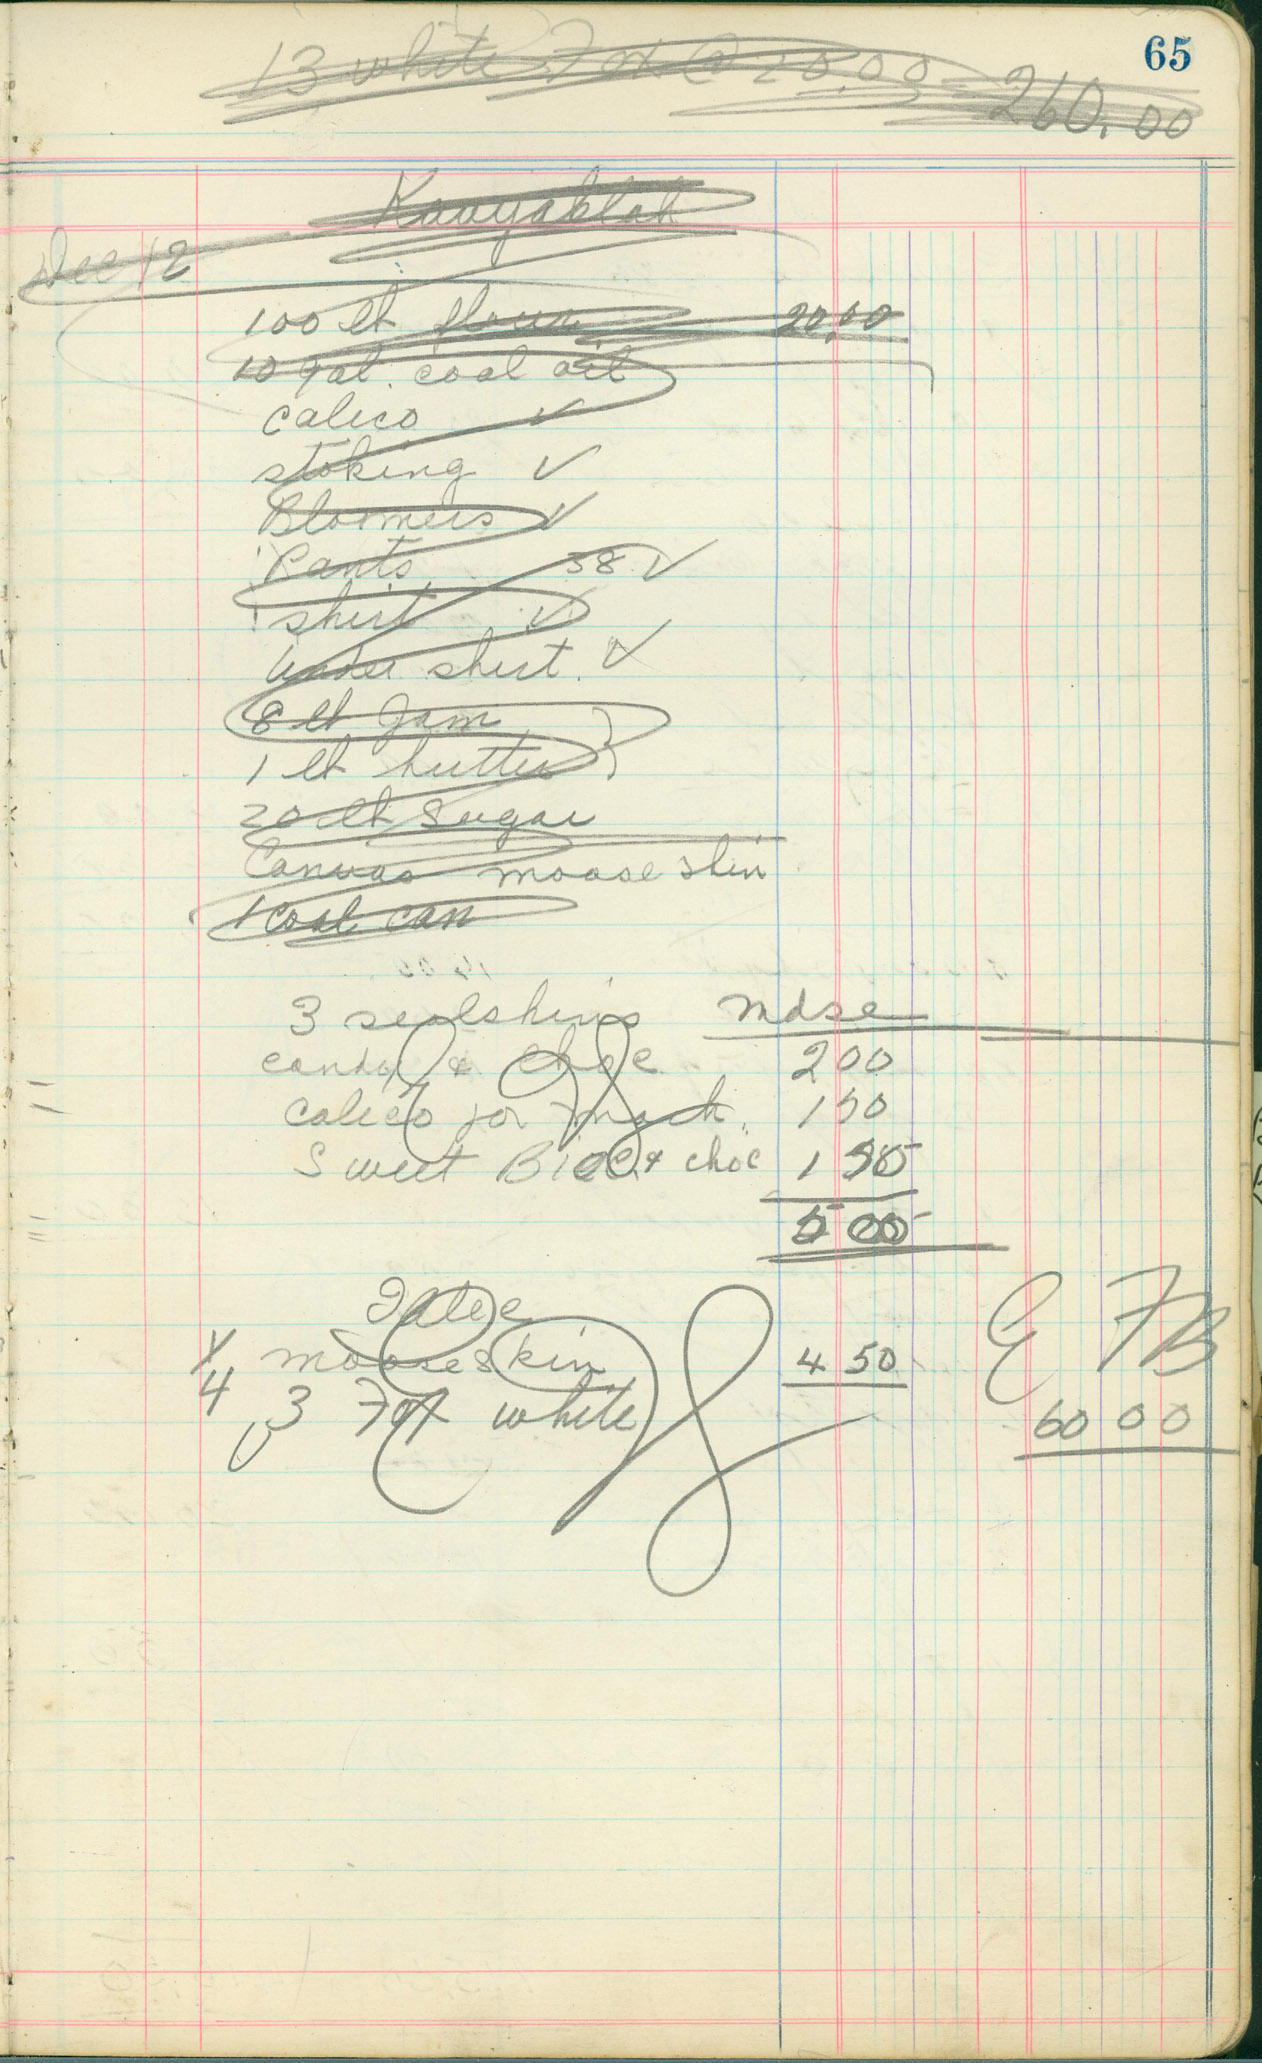 65
13 white Fox @ 20.00 260.00
Kavyaklak
Dec 12
100 lb flour 20.00
10 gal. coal oil
calico ✓
stoking ✓
Bloomers ✓
Pants 38 ✓
shirt ✓
Under shirt. ✓
8 lb Jam
1 lb butter
20 lb Sugar
Canvas moose skin
1 coal can
3 sealskins mdse
candy & choc 200
calico for 150
Sweet Bisc & choc 1
5 00
mooseskin 4 50
E FB
4 3 Fox white 60 00